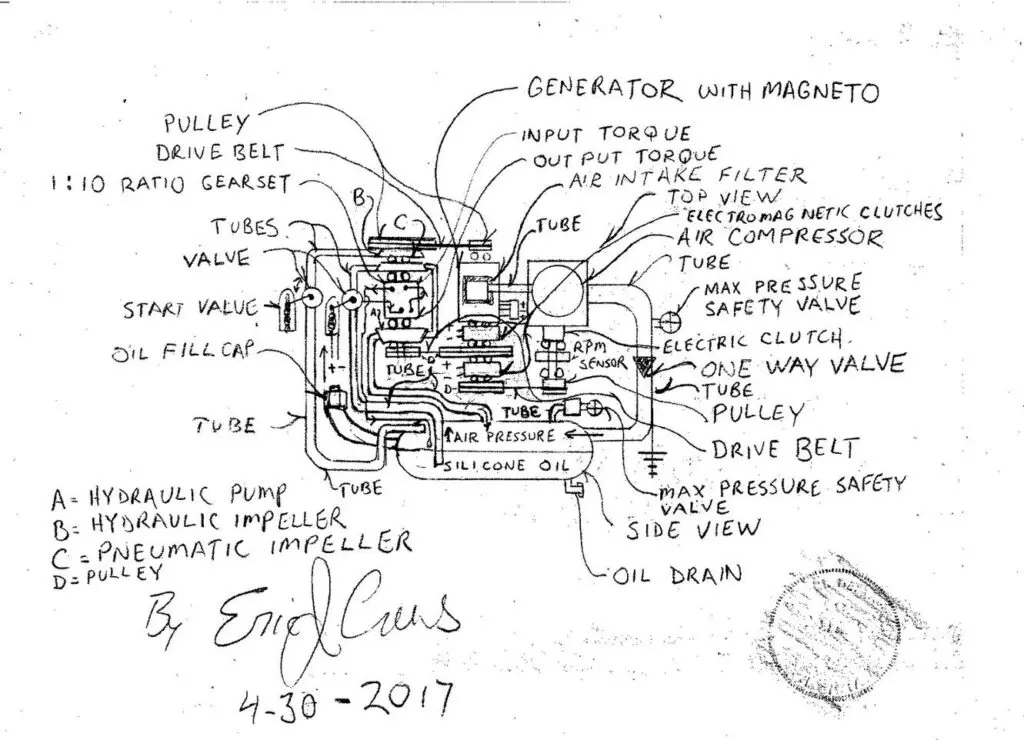 GENERATOR WITH MAGNETO
PULLEY
INPUT TORQUE
DRIVE BELT
OUTPUT TORQUE
1:10 RATIO GEARSET
AIR INTAKE FILTER
TOP VIEW
B
C
TUBES
TUBE
ELECTROMAGNETIC CLUTCHES
AIR COMPRESSOR
VALVE
TUBE
MAX PRESSURE
SAFETY VALVE
START VALVE
A
ELECTRIC CLUTCH
OIL FILL CAP
RPM
SENSOR
ONE WAY VALVE
TUBE
D
TUBE
TUBE
PULLEY
TUBE
AIR PRESSURE
DRIVE BELT
SILICONE OIL
TUBE
MAX PRESSURE SAFETY
VALVE
SIDE VIEW
OIL DRAIN
A = HYDRAULIC PUMP
B = HYDRAULIC IMPELLER
C = PNEUMATIC IMPELLER
D = PULLEY
By Eric J
4-30-2017